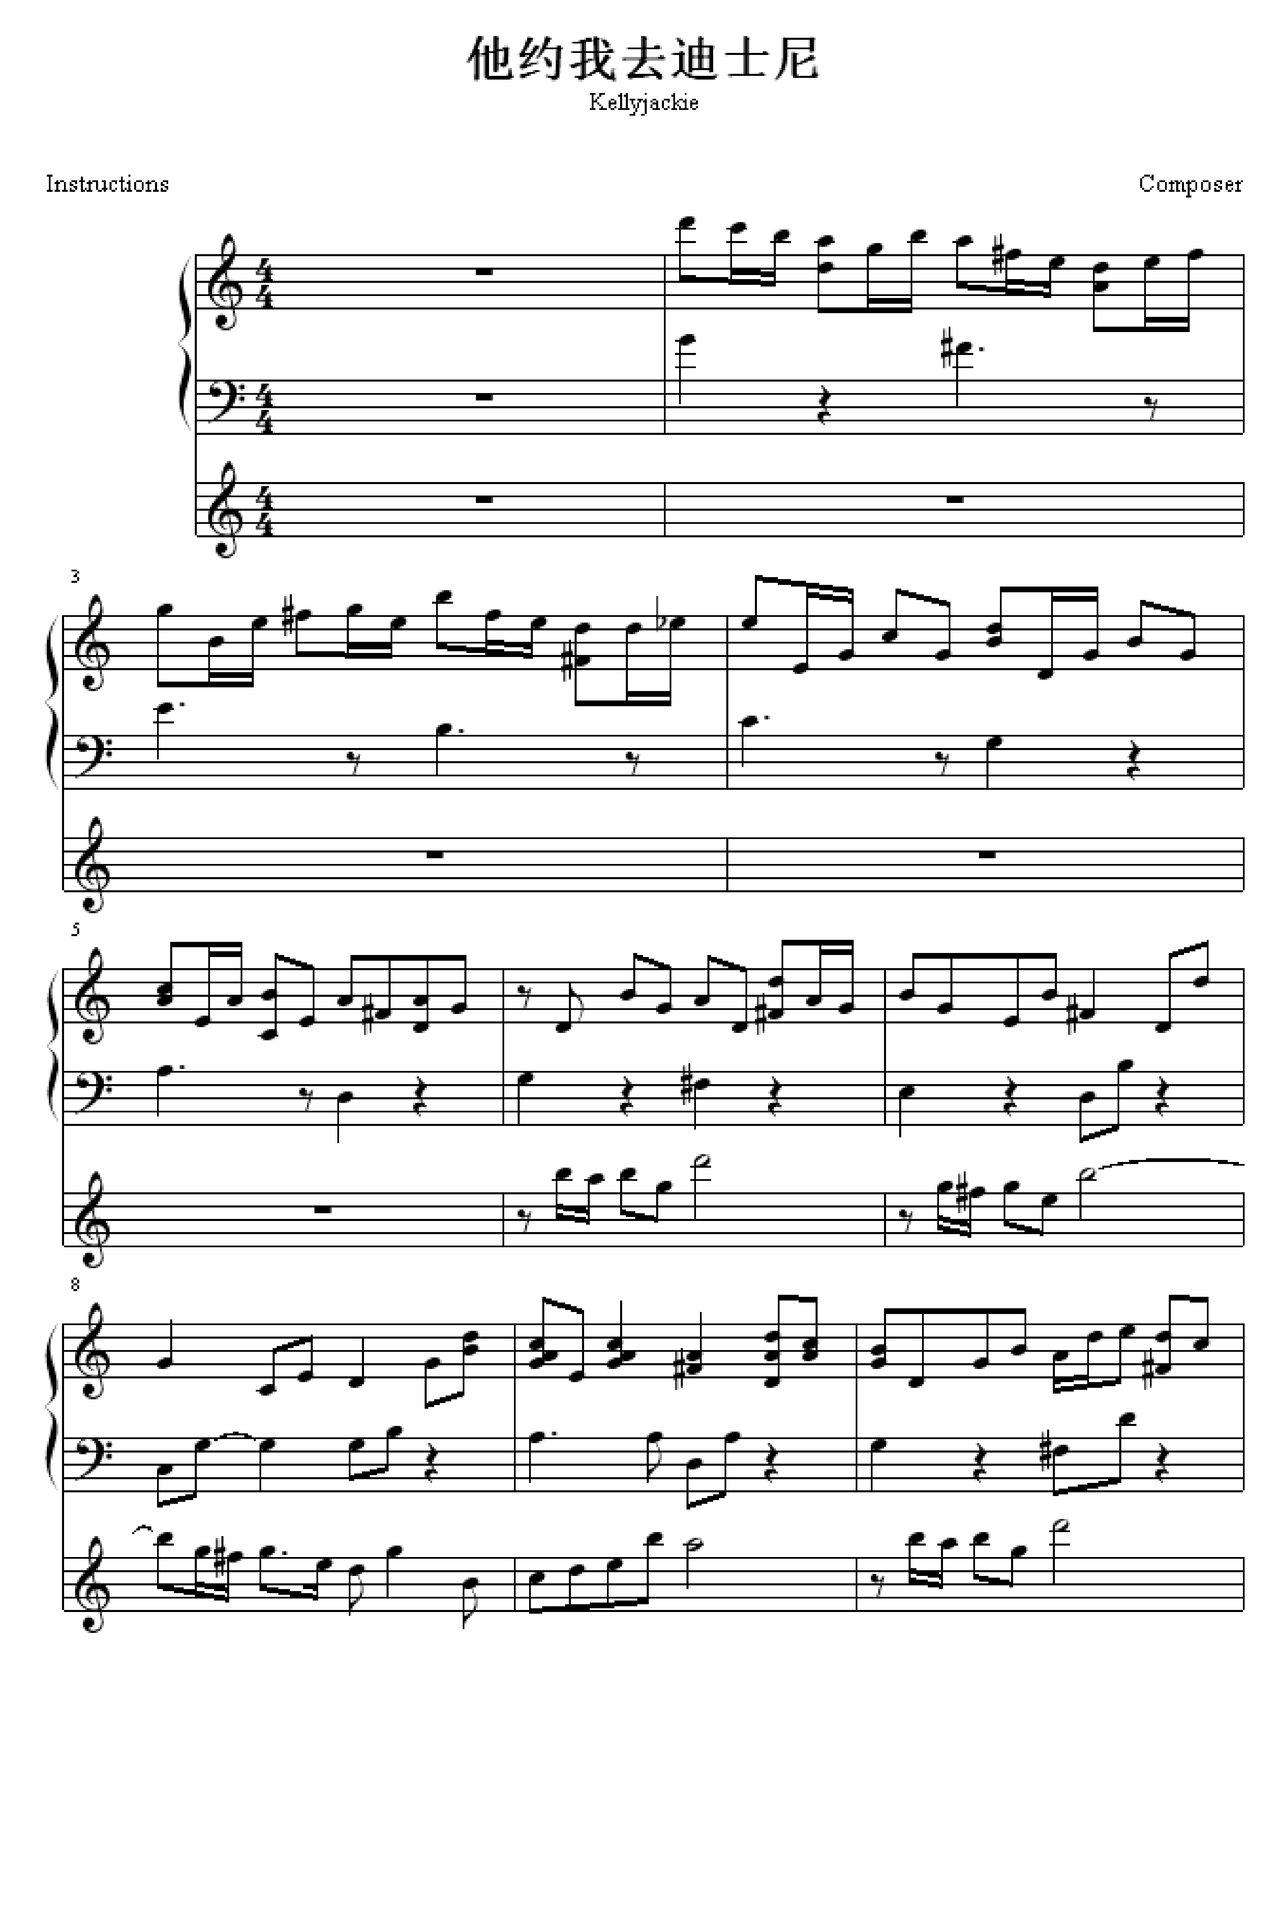 他约我去迪士尼
Kellyjackie
Instructions
Composer
4
4
4
4
4
4
3
5
8